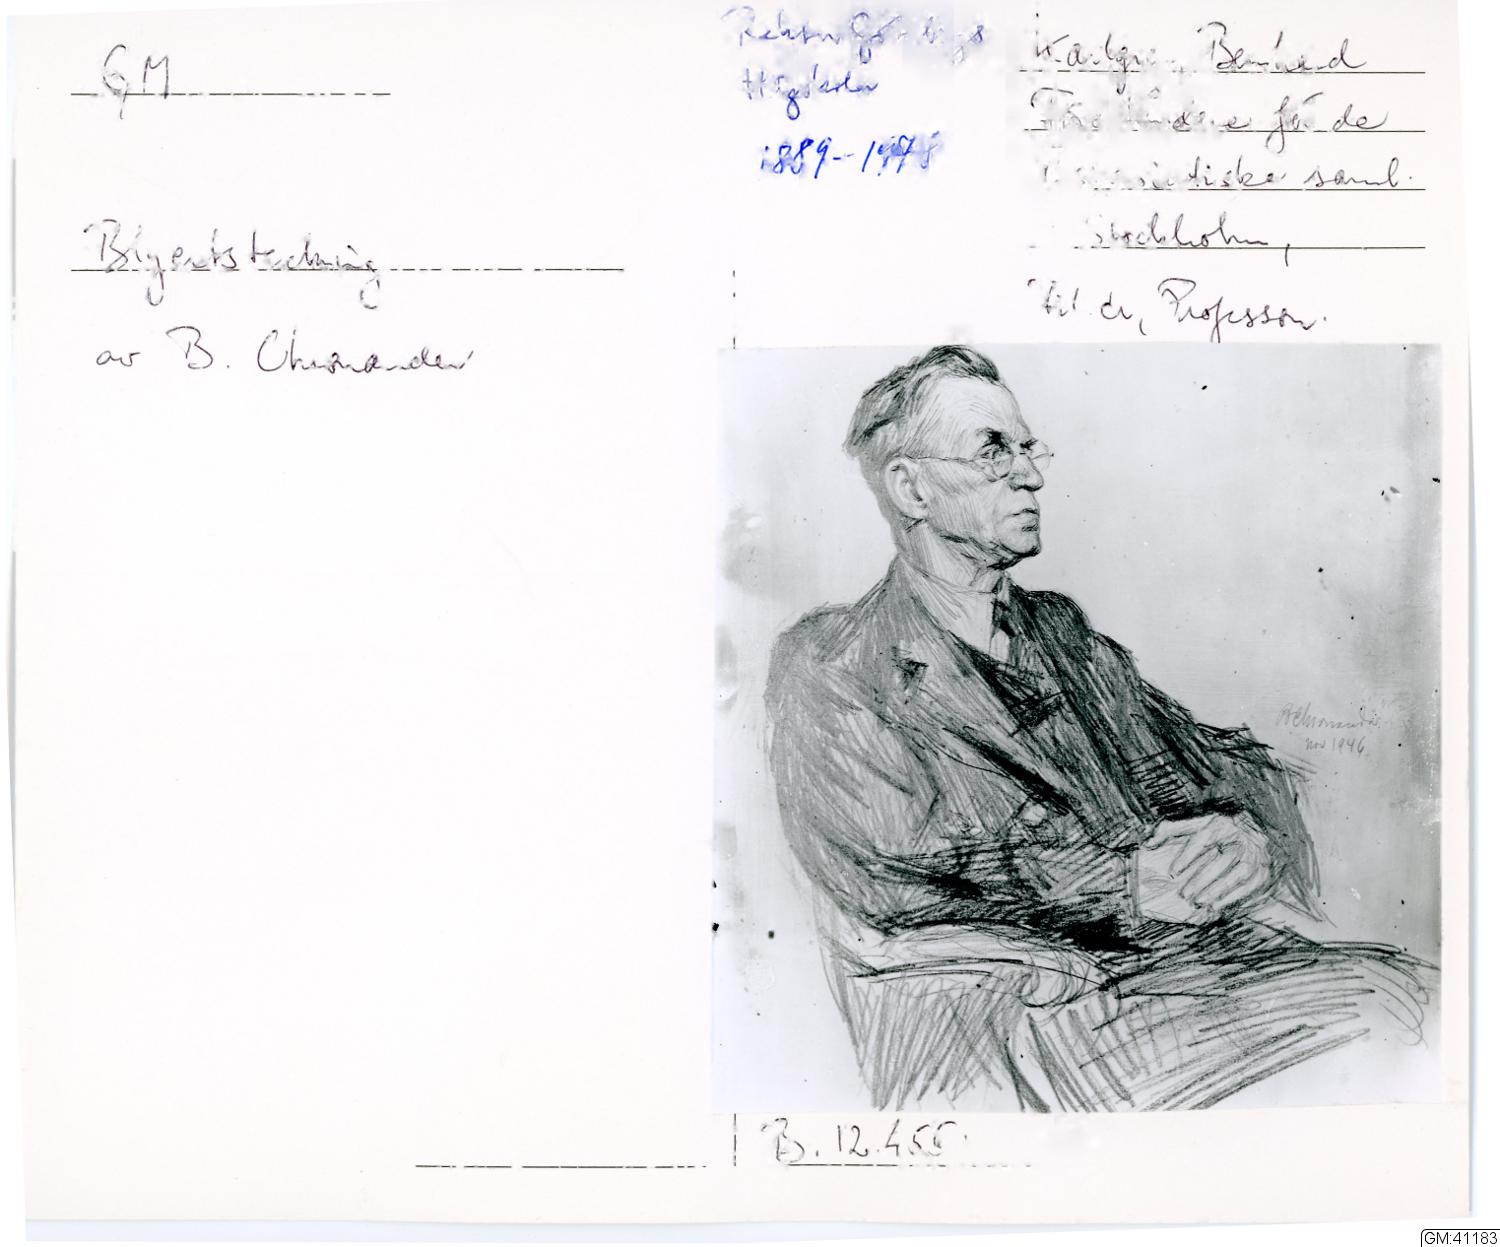 GM
Blyertsteckning
av B. Chronander
Rektor Göteborgs
Högskola
1889--1978
Karlgren, Bernhard
Föreståndare för de
Östasiatiska saml.
Stockholm,
Fil. dr, Professor.
BChronander
nov 1946.
B. 12.455.
GM:41183